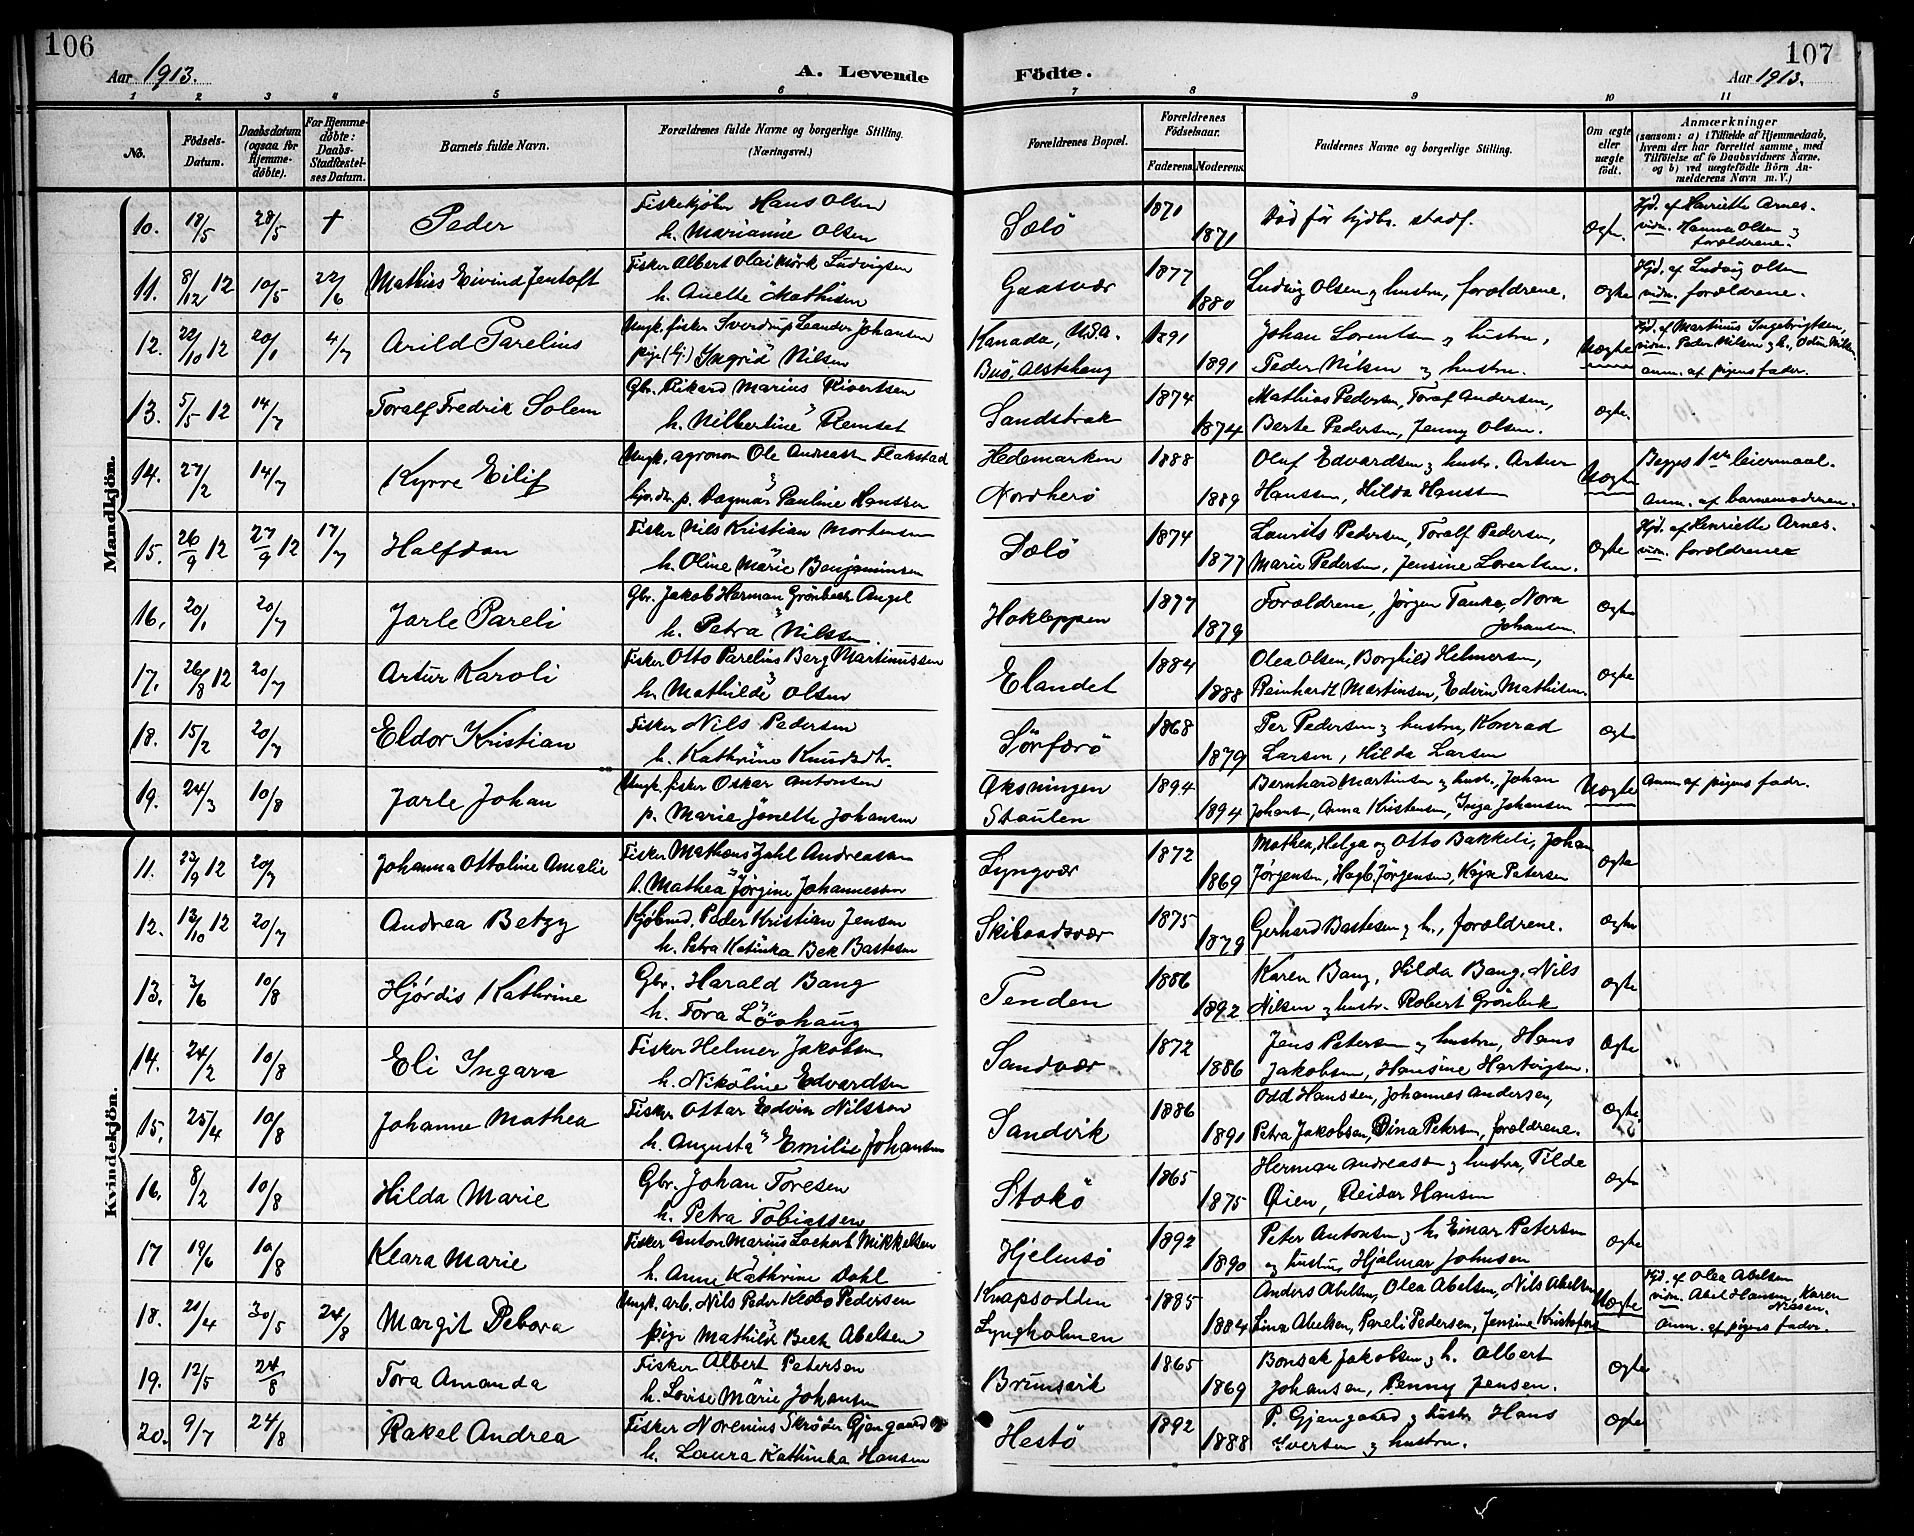 106
107
Aar 1913.
A. Levende
Födte.
Aar 1913.
1 2 3 4 5 6 7 8 9 10 11
No.
Födsels-Datum.
Daabsdatum (ogsaa for Hjemme-döbte).
For Hjemme-döbte: Daabs-Stadfæstel-ses Datum.
Barnets fulde Navn.
Forældrenes fulde Navne og borgerlige Stilling. (Næringsvei.)
Forældrenes Bopæl.
Forældrenes Födselsaar.
Faderens. Moderens.
Faddernes Navne og borgerlige Stilling.
Om ægte eller uægte födt.
Anmærkninger
(saasom: a) i Tilfælde af Hjemmedaab, hvem der har forrettet samme, med Tilföielse af to Daabsvidners Navne, og b) ved uægtefödte Börn An-melderens Navn m. V.)
Mandkjön.
10. 18/5 28/5 † Peder Fiskekjöber Hans Olsen
h. Marianne Olsen Sælö 1871 1871 Död för hjdbs. stadf. Ægte. Hjd. af Henriette Arnes.
vidn. Hanna Olsen og
forældrene.
11. 8/12 12 10/5 22/6 Mathias Eivind Jentoft Fisker Albert Olai Mörk Ludvigsen
h. Anette Mathisen Gaasvær 1877 1880 Ludvig Olsen og hustru, forældrene. Ægte Hjd. af Ludvig Olsen
vidn. forældrene.
12. 22/10 12 20/1 4/7 Arild Parelius Ungk. fisker Sverdrup Leander Johansen
pige (tj.) Ingrid Nilsen Kanada, Usa.
Buö, Alstahaug 1891 1891 Johan Lorentsen og hustru,
Peder Nilsen og hustru. Uægte Hjd. af Martinus Ingebrigtsen,
vidn. Peder Nilsen og h., Odin Nilsen.
anm. af pigens fader.
13. 5/5 12 14/7 Toralf Fredrik Solem Gbr. Rikard Marius Sivertsen
h. Nilbertine Remset Sandstrak 1874 1874 Mathias Pedersen, Toraf Andersen,
Berte Pedersen, Jenny Olsen. Ægte.
14. 27/2 14/7 Kyrre Eilif Ungk. agronom Ole Andreassen Flakstad
p. Dagmar Pauline Hanssen Hedemarken
Nordherö 1888 1889 Oluf Edvardsen og hustr. Artur
Hanssen, Hilda Hanssen Uægte Begges 1ste leiermaal.
anm. af barnemoderen.
15. 26/9 12 27/9 12 17/7 Halfdan Fisker Nils Kristian Mortensen
h. Oline Marie Benjaminsen Sælö 1874 1877 Laurits Pedersen, Toralf Pedersen,
Marie Pedersen, Jensine Lorentsen. Ægte Hjd. af Henriette Arnes.
vidn. forældrene
16. 20/1 20/7 Jarle Pareli Gbr. Jakob Herman Grönbech Angel
h. Petra Nilssen. Hakleppen 1877 1879 Forældrene, Jörgen Tanke, Nora
Johansen. Ægte
17. 26/8 12 20/7 Artur Karoli Fisker Otto Parelius Berg Martinussen
h. Mathilde Olsen Elandet 1884 1888 Olea Olsen, Borghild Helmersen,
Reinhardt Martinsen, Edvin Mathisen. Ægte
18. 15/2 20/7 Eldor Kristian Fisker Nils Pedersen
h. Kathrine Knudsdtr. Sörfærö 1868 1879 Per Pedersen og hustru, Konrad
Larsen, Hilda Larsen Ægte
19. 24/3 10/8 Jarle Johan Ungk. fisker Oskar Antonsen
p. Marie Jonette Johansen Øksningen
Staulen 1894 1894 Bernhard Martinsen og hust., Johan
Johansen, Anna Kristensen, Inga Johansen Uægte Anm. af pigens fader.
Kvindekjön.
11. 23/9 12 20/7 Johanna Ottoline Amalie Fisker Mathæus Zahl Andreassen
h. Mathea Jörgine Johannessen Lyngvær 1872 1869 Mathea, Helga og Otto Bakkeli, Johan
Jörgensen, Hagb. Jörgensen, Kaja Petersen Ægte
12. 13/10 12 20/7 Andrea Betzy Kjöbmd. Peder Kristian Jensen
h. Petra Katinka Bek Bastesen Skibaadsvær 1875 1879 Gerhard Bastesen og h., forældrene. Ægte
13. 3/6 10/8 Hjördis Kathrine Gbr. Harald Bang
h. Tora Lövhaug Tenden 1886 1892 Karen Bang, Hilda Bang, Nils
Nilsen og hustr. Robert Grönbek Ægte
14. 24/2 10/8 Eli Ingara Fisker Helmer Jakobsen
h. Nikoline Edvardsen Sandvær 1872 1886 Jens Petersen og hustru, Hans
Jakobsen, Hansine Hartvigsen. Ægte
15. 25/4 10/8 Johanne Mathea Fisker Ottar Edvin Nilsson
h. Augusta Emilie Johansen Sandvik 1886 1891 Odd Hanssen, Johannes Andersen,
Petra Jakobsen, Dina Petersen, forældrene. Ægte
16. 8/2 10/8 Hilda Marie Gbr. Johan Toresen
h. Petra Tobiassen Stokö 1865 1875 Herman Andreassen og hustru, Tilde
Øien, Reidar Hansen Ægte
17 19/6 10/8 Klara Marie Fisker Anton Marius Lockert Mikkelsen
h. Anne Kathrine Dahl Hjelmsö 1892 1890 Peter Antonsen og h. Einar Petersen
og hustru, Hjalmar Johnsen Ægte
18. 21/4 30/5 24/8 Margit Debora Ungk. arb. Nils Peder Klæbo Pedersen
pige Mathilde Bech Abelsen Knapsodden
Lyngholmen 1885 1884 Anders Abelsen, Olea Abelsen, Nils Abelsen
Lina Abelsen, Pareli Pedersen, Jensine Kristofersen Uægte Hjd. af Olea Abelsen
vidn. Abel Hansen, Karen
Nissen.
anm. af pigens fader.
19. 12/5 24/8 Tora Amanda Fisker Albert Petersen
h. Lovise Marie Johansen Brunsvik 1865 1869 Bonsak Jakobsen og h. Albert
Johansen, Penny Jensen. Ægte
20. 9/7 24/8 Rakel Andrea Fisker Norenius Skröder Gjengaard
h. Laura Kathinka Hansen Hestö 1892 1888 P. Gjengaard og hustr. Hans
Iversen og hustru. Ægte